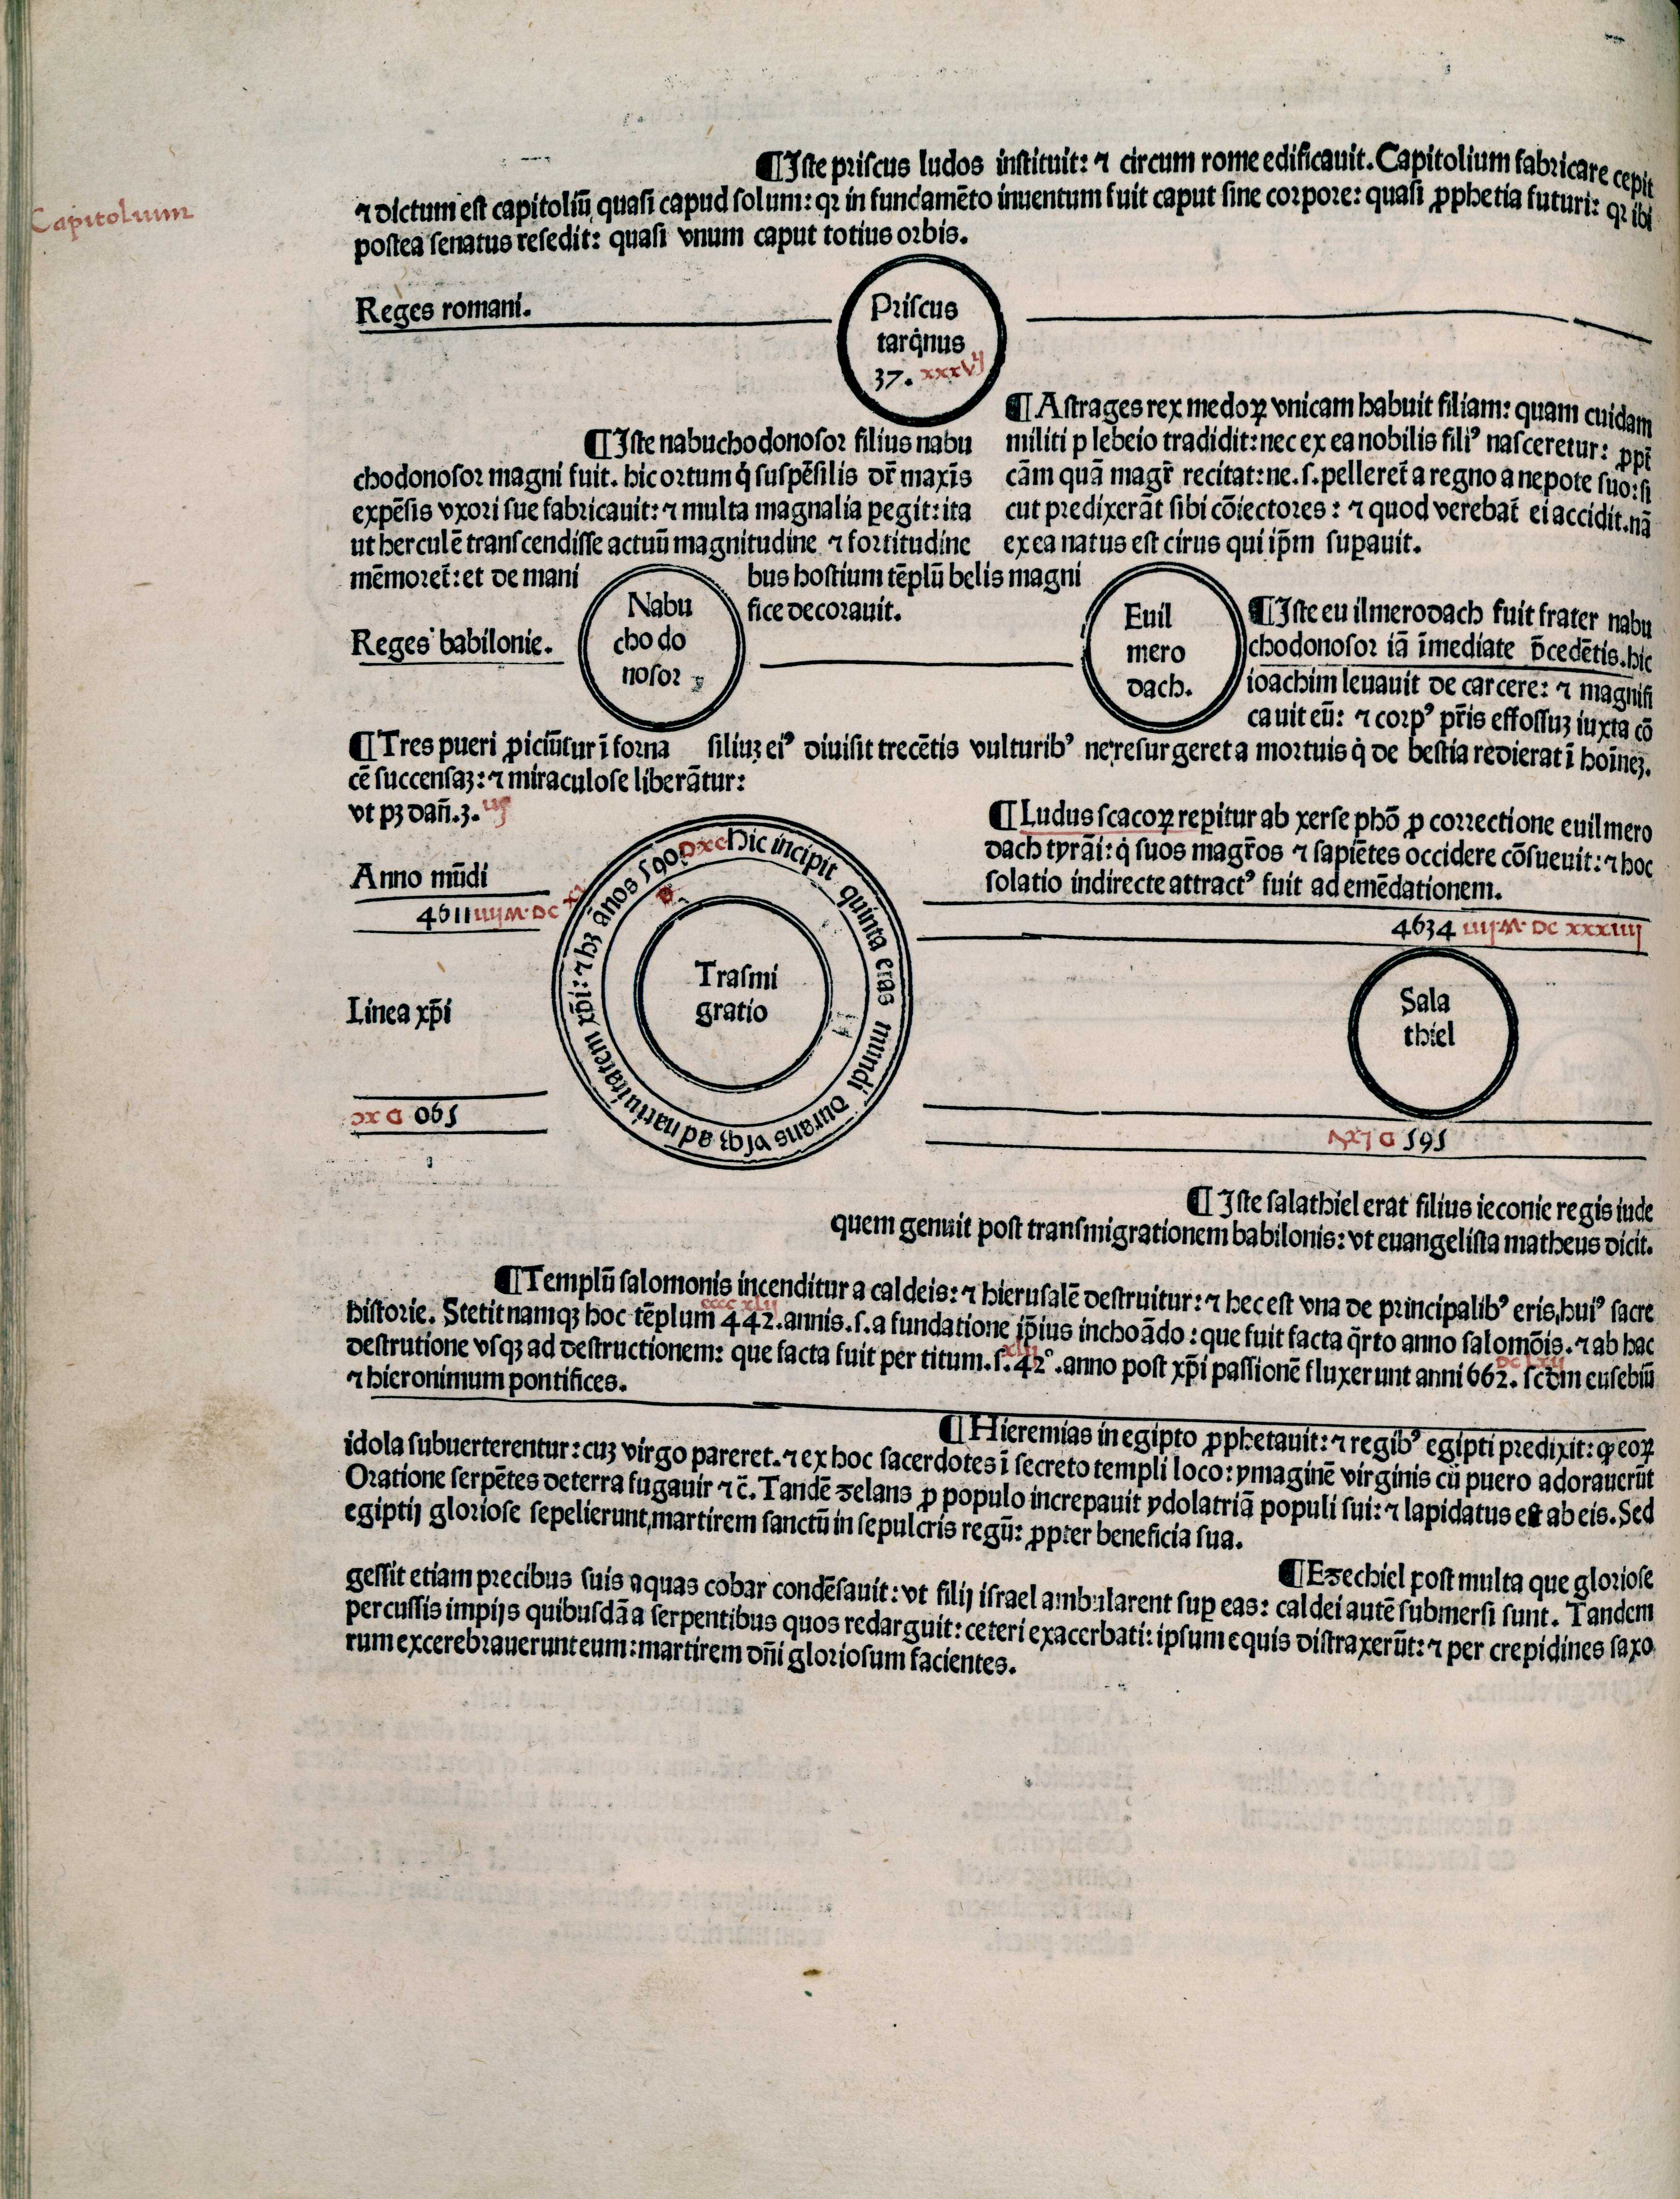 ¶Iste priscus ludos instituit: ⁊ circum rome edificauit. Capitolium fabricare cepit
⁊ dictum est capitoliū quasi capud solum: qꝛ in fundamēto inuentum fuit caput sine corpore: quasi ꝓphetia futuri: qꝛ ibi
postea senatus resedit: quasi vnum caput totius orbis.
Capitolium
Reges romani.
Priscus
tarq̇nus
37. xxxvij
¶Iste nabuchodonosor filius nabu
chodonosor magni fuit. hic ortum q̇ suspēsilis dr̄ maxīs
expēsis vxori sue fabricauit: ⁊ multa magnalia ꝑegit: ita
ut herculē transcendisse actuū magnitudine ⁊ fortitudine
mēmoret̄: et de mani bus hostium tēplū belis magni
fice decorauit.
¶Astrages rex medoꝝ vnicam habuit filiam: quam cuidam
militi plebeio tradidit: nec ex ea nobilis filiꝰ nasceretur: ꝓpt̄
cām quā magr̄ recitat: ne .s. pelleret̄ a regno a nepote suo: si
cut predixerāt sibi cōiectores: ⁊ quod verebat̄ ei accidit. nā
ex ea natus est cirus qui ip̄m suꝑauit.
Reges babilonie.
Nabu
chodo
nosor
Euil
mero
dach.
¶Iste euilmerodach fuit frater nabu
chodonosor iā īmediate p̄cedētis. hic
ioachim leuauit de carcere: ⁊ magnifi
cauit eū: ⁊ corpꝰ pr̄is effossuꝫ iuxta cō
siliuꝫ eiꝰ diuisit trecētis vulturibꝰ ne resurgeret a mortuis q̇ de bestia redierat ī hoīneꝫ.
¶Tres pueri ꝓiciūtur ī forna
cē succensaꝫ: ⁊ miraculose liberātur:
vt pꝫ dan̄. 3. iij
¶Ludus scacoꝝ reꝑitur ab xerse phō ꝓ correctione euilmero
dach tyrāi: q̇ suos magr̄os ⁊ sapiētes occidere cōsueuit: ⁊ hoc
solatio indirecte attractꝰ fuit ad emēdationem.
Anno mūdi
4611 iiijM.DC xj
4634 iiijM.DC xxxiiij
Hic incipit quinta etas mundi durans vsqꝫ ad natiuitatem xp̄i: ⁊ hꝫ ānos 590. Dxc
Trasmi
gratio
Linea xp̄i
Sala
thiel
590 D xc
591
¶Iste salathiel erat filius ieconie regis iude
quem genuit post transmigrationem babilonis: vt euangelista matheus dicit.
¶Templū salomonis incenditur a caldeis: ⁊ hierusalē destruitur: ⁊ hec est vna de principalibꝰ eris, huiꝰ sacre
historie. Stetit namqꝫ hoc tēplum 442. annis .s. a fundatione ip̄ius inchoādo: que fuit facta q̄rto anno salomōis. ⁊ ab hac
cccc xlij
destrutione vsqꝫ ad destructionem: que facta fuit per titum .s. 42°. anno post xp̄i passionē fluxerunt anni 662. scd̄m eusebiū
xlij
DC lxij
⁊ hieronimum pontifices.
¶Hieremias in egipto ꝓphetauit: ⁊ regibꝰ egipti predixit: ꝙ eoꝝ
idola subuerterentur: cuꝫ virgo pareret. ⁊ ex hoc sacerdotes ī secreto templi loco: ymaginē virginis cū puero adorauerūt
Oratione serpētes de terra fugauir ⁊ c̄. Tandē zelans ꝓ populo increpauit ydolatriā populi sui: ⁊ lapidatus est ab eis. Sed
egiptij gloriose sepelierunt, martirem sanctū in sepulcris regū: ꝓpter beneficia sua.
¶Ezechiel post multa que gloriose
gessit etiam precibus suis aquas cobar condēsauit: vt filij israel ambularent suꝑ eas: caldei autē submersi sunt. Tandem
percussis impijs quibusdā a serpentibus quos redarguit: ceteri exacerbati: ipsum equis distraxerūt: ⁊ per crepidines saxo
rum excerebrauerunt eum: martirem dn̄i gloriosum facientes.